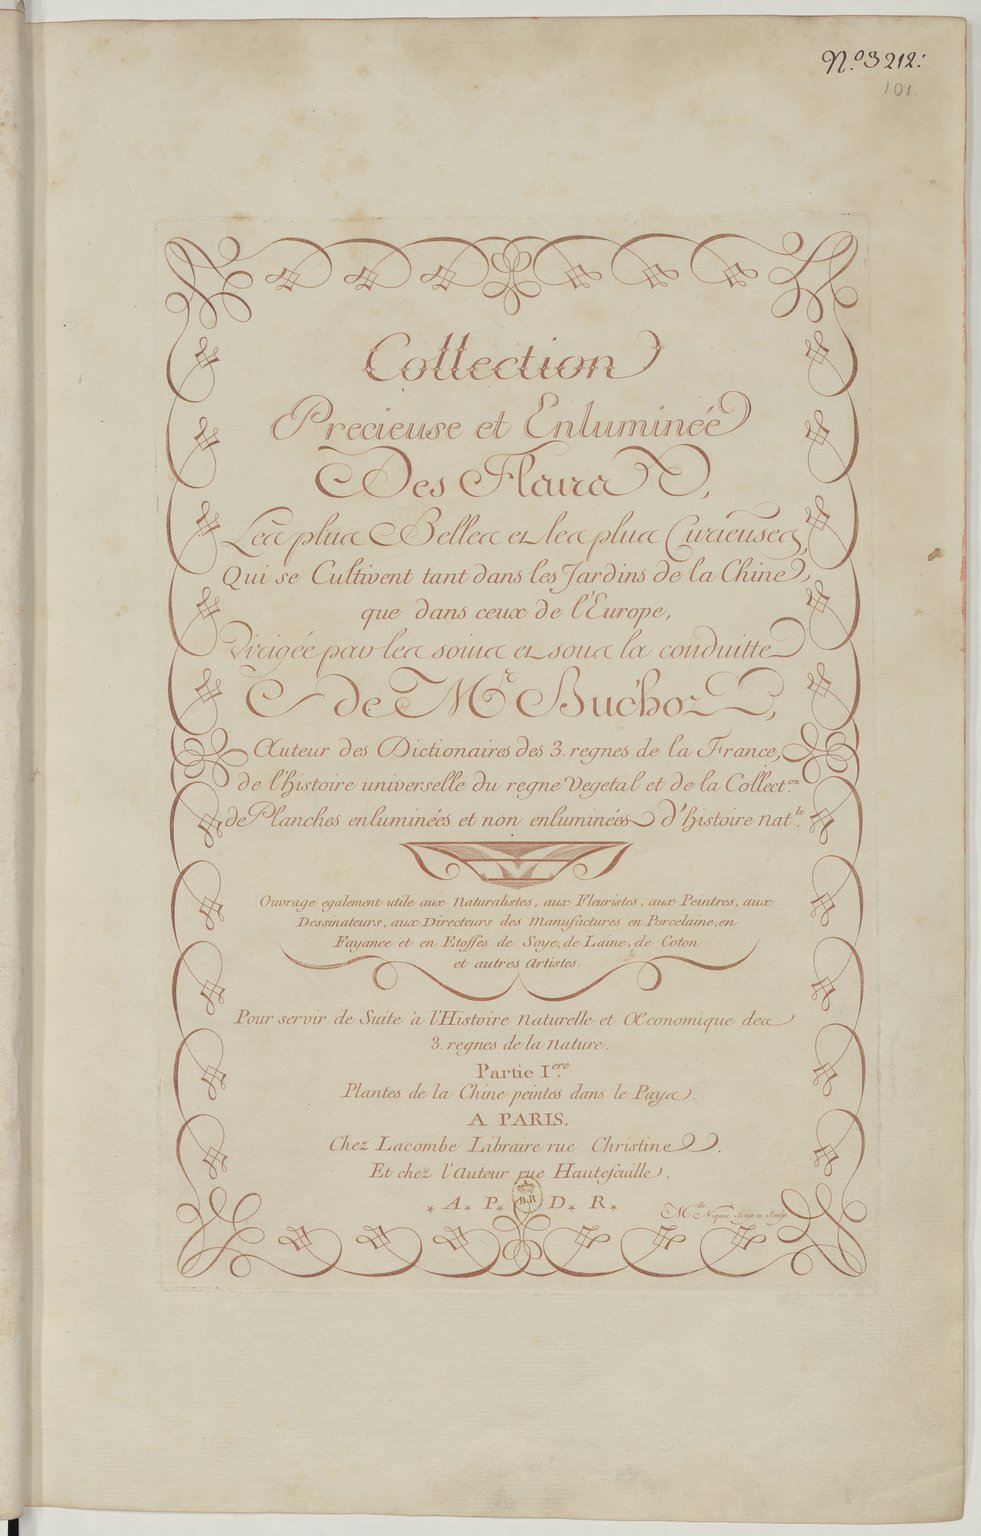 N.o 3212:
101.
Collection
Precieuse et Enluminée
Des Fleurs,
Les plus Belles et les plus Curieuses,
Qui se Cultivent tant dans les Jardins de la Chine,
que dans ceux de l'Europe,
Dirigée par les soins et sous la conduitte
de Mr Buc'hoz,
Auteur des Dictionaires des 3. regnes de la France,
de l'histoire universelle du regne Vegetal et de la Collect.on
de Planches enluminées et non enluminées d'histoire nat.le
Ouvrage egalement utile aux Naturalistes, aux Fleuristes, aux Peintres, aux
Dessinateurs, aux Directeurs des Manufactures en Porcelaine, en
Fayance et en Etoffes de Soye, de Laine, de Coton
et autres Artistes.
Pour servir de Suite à l'Histoire Naturelle et Œconomique des
3. regnes de la Nature.
Partie I.ere
Plantes de la Chine peintes dans le Pays.
A PARIS.
Chez Lacombe Libraire rue Christine.
Et chez l'Auteur rue Hautefeuille.
* A * P * D * R *
B R
Mlle Niquet Scrip et Sculp.